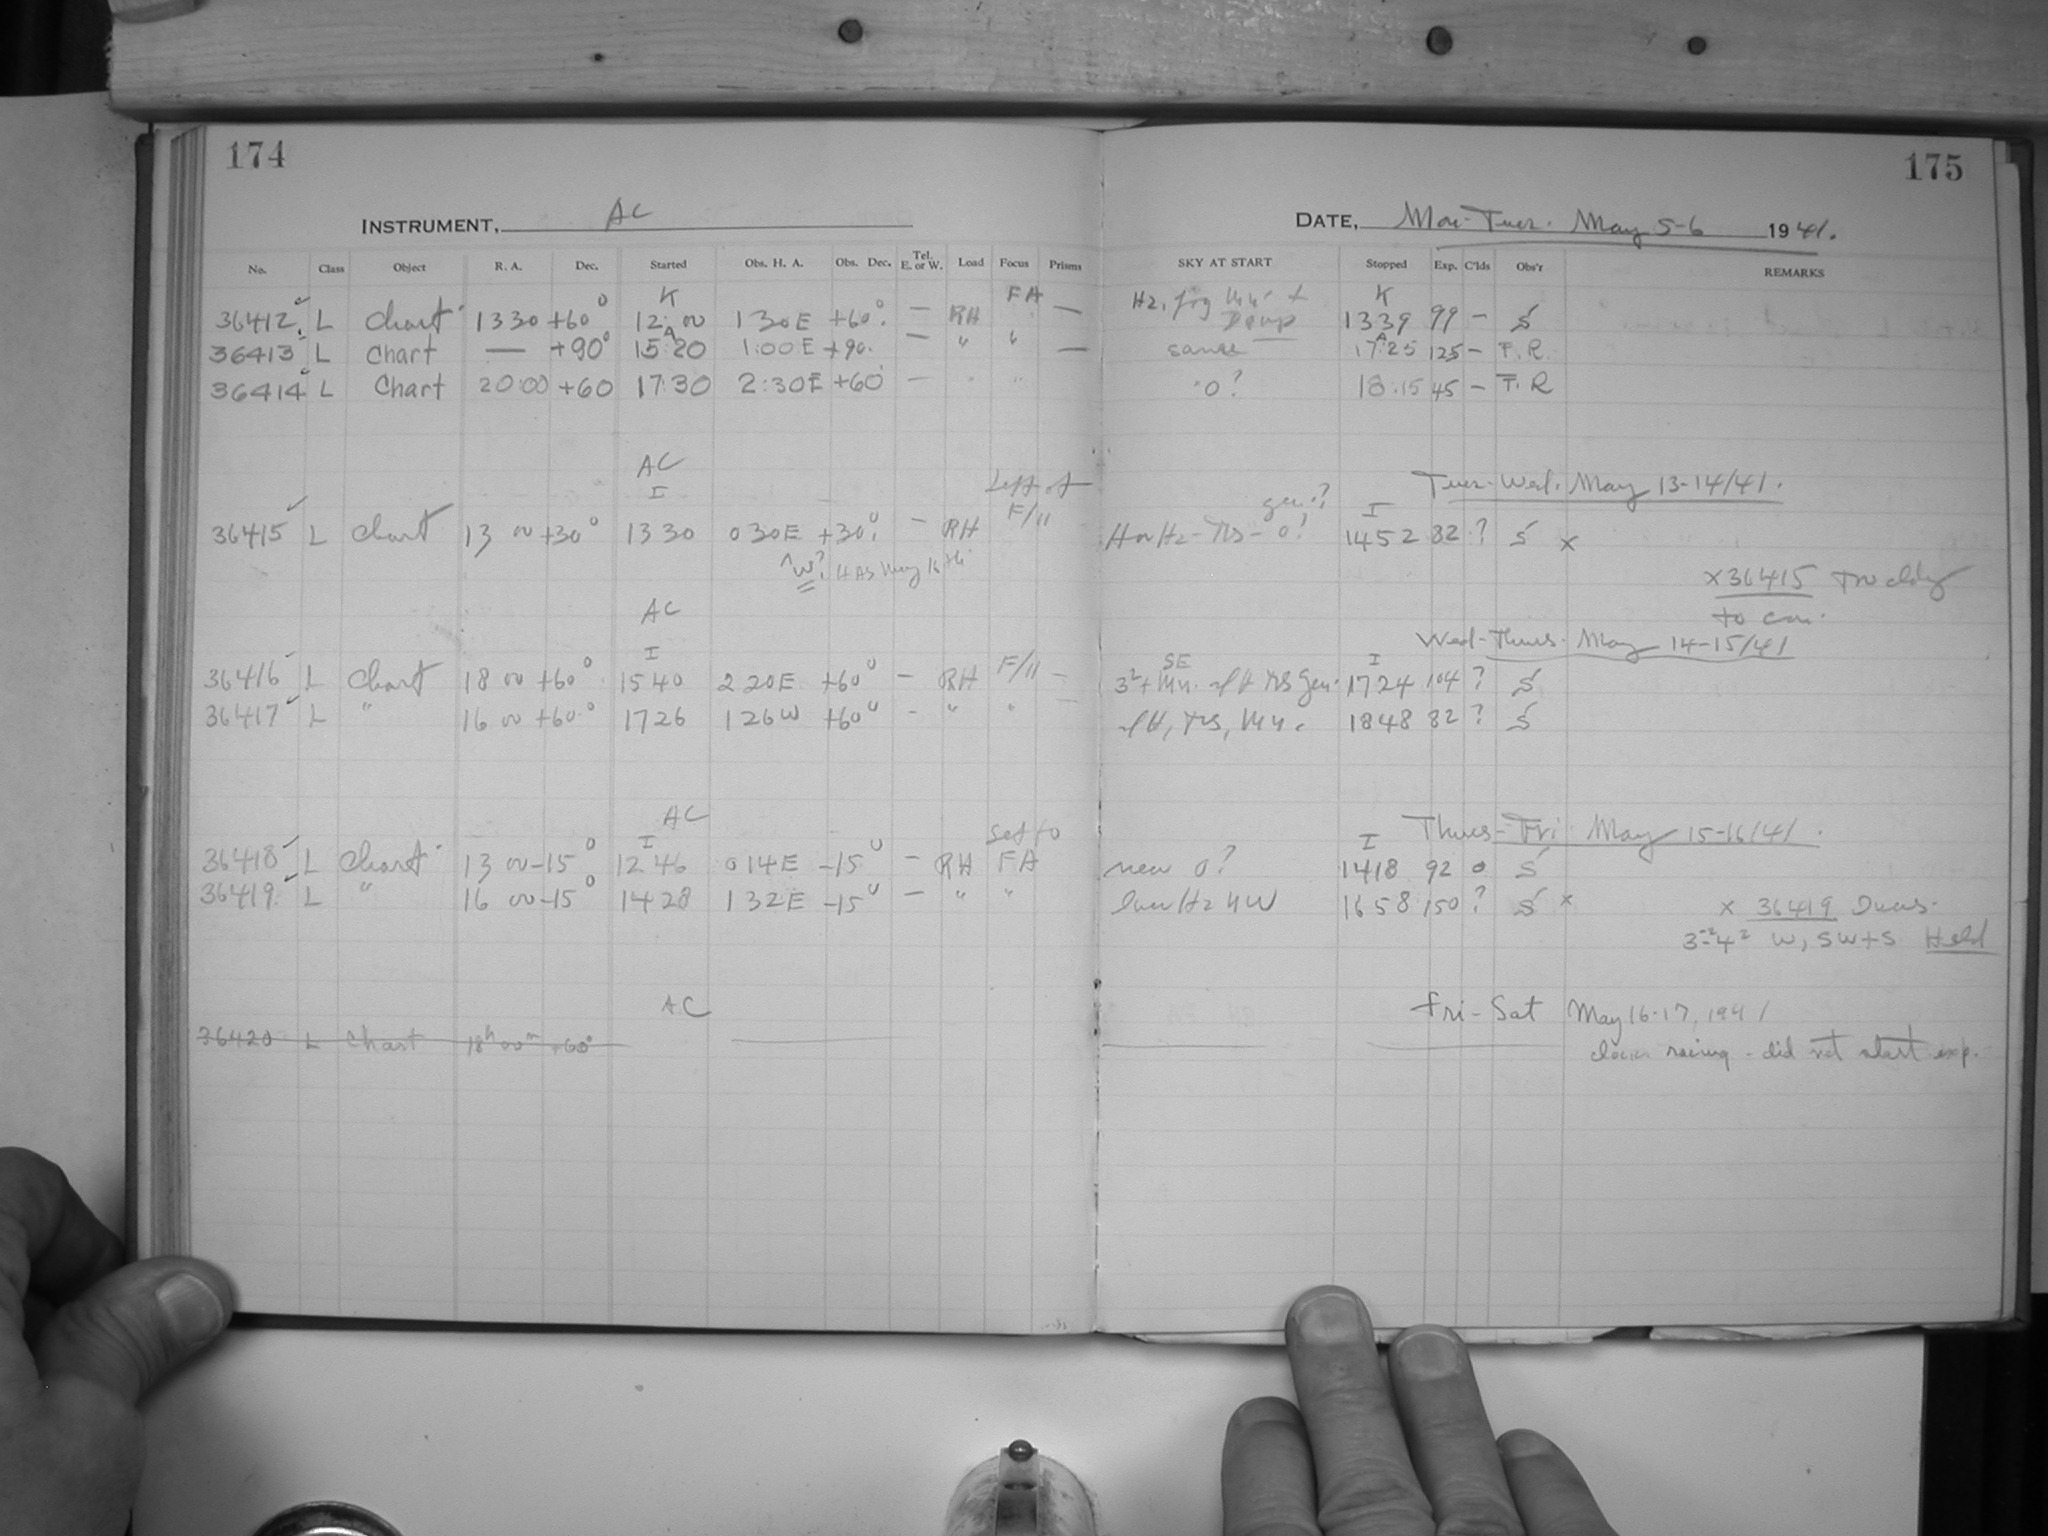 174
175
INSTRUMENT, AC
DATE, Mon-Tues. May 5-6 1941.
No. Class Object R. A. Dec. Started Obs. H. A. Obs. Dec. Tel. E. or W. Load Focus Prisms SKY AT START Stopped Exp. C'lds Obs'r REMARKS
K FA K
36412 L Chart 13 30 +60° 12:00 1 30 E +60° — RH — Hz, 1339 99 — S
A A
36413 L Chart — +90° 15:20 1:00 E +90. — " " — same 17:25 125 — F. R.
36414 L Chart 20:00 +60 17:30 2:30E +60 — " " 0? 18:15 45 — F. R
AC Tues-Wed. May 13-14/41.
I Left at gen? I
36415 L Chart 13 00 +30° 13 30 0 30E +30° — RH F/11 0? 1452 82 ? S x
W? May 16th
x 36415
AC Wed-Thurs. May 14-15/41
I SE I
36416 L Chart 18 00 +60° 15 40 2 20E +60° — RH F/11 — 1724 104 ? S
36417 L " 16 00 +60° 1726 1 26W +60° - " " — 1848 82 ? S
AC Thurs-Fri May 15-16/41.
I Set to I
36418 L Chart 13 00 -15° 12 46 0 14E -15° — RH FA new 0? 1418 92 0 S
36419 L " 16 00 -15° 14 28 1 32E -15° — " " low Hz NW 1658 150 ? S x
x 36419
W, SW+S Held
AC Fri-Sat May 16-17, 1941
36420 L Chart 18h 00m +60° racing - did not start exp.